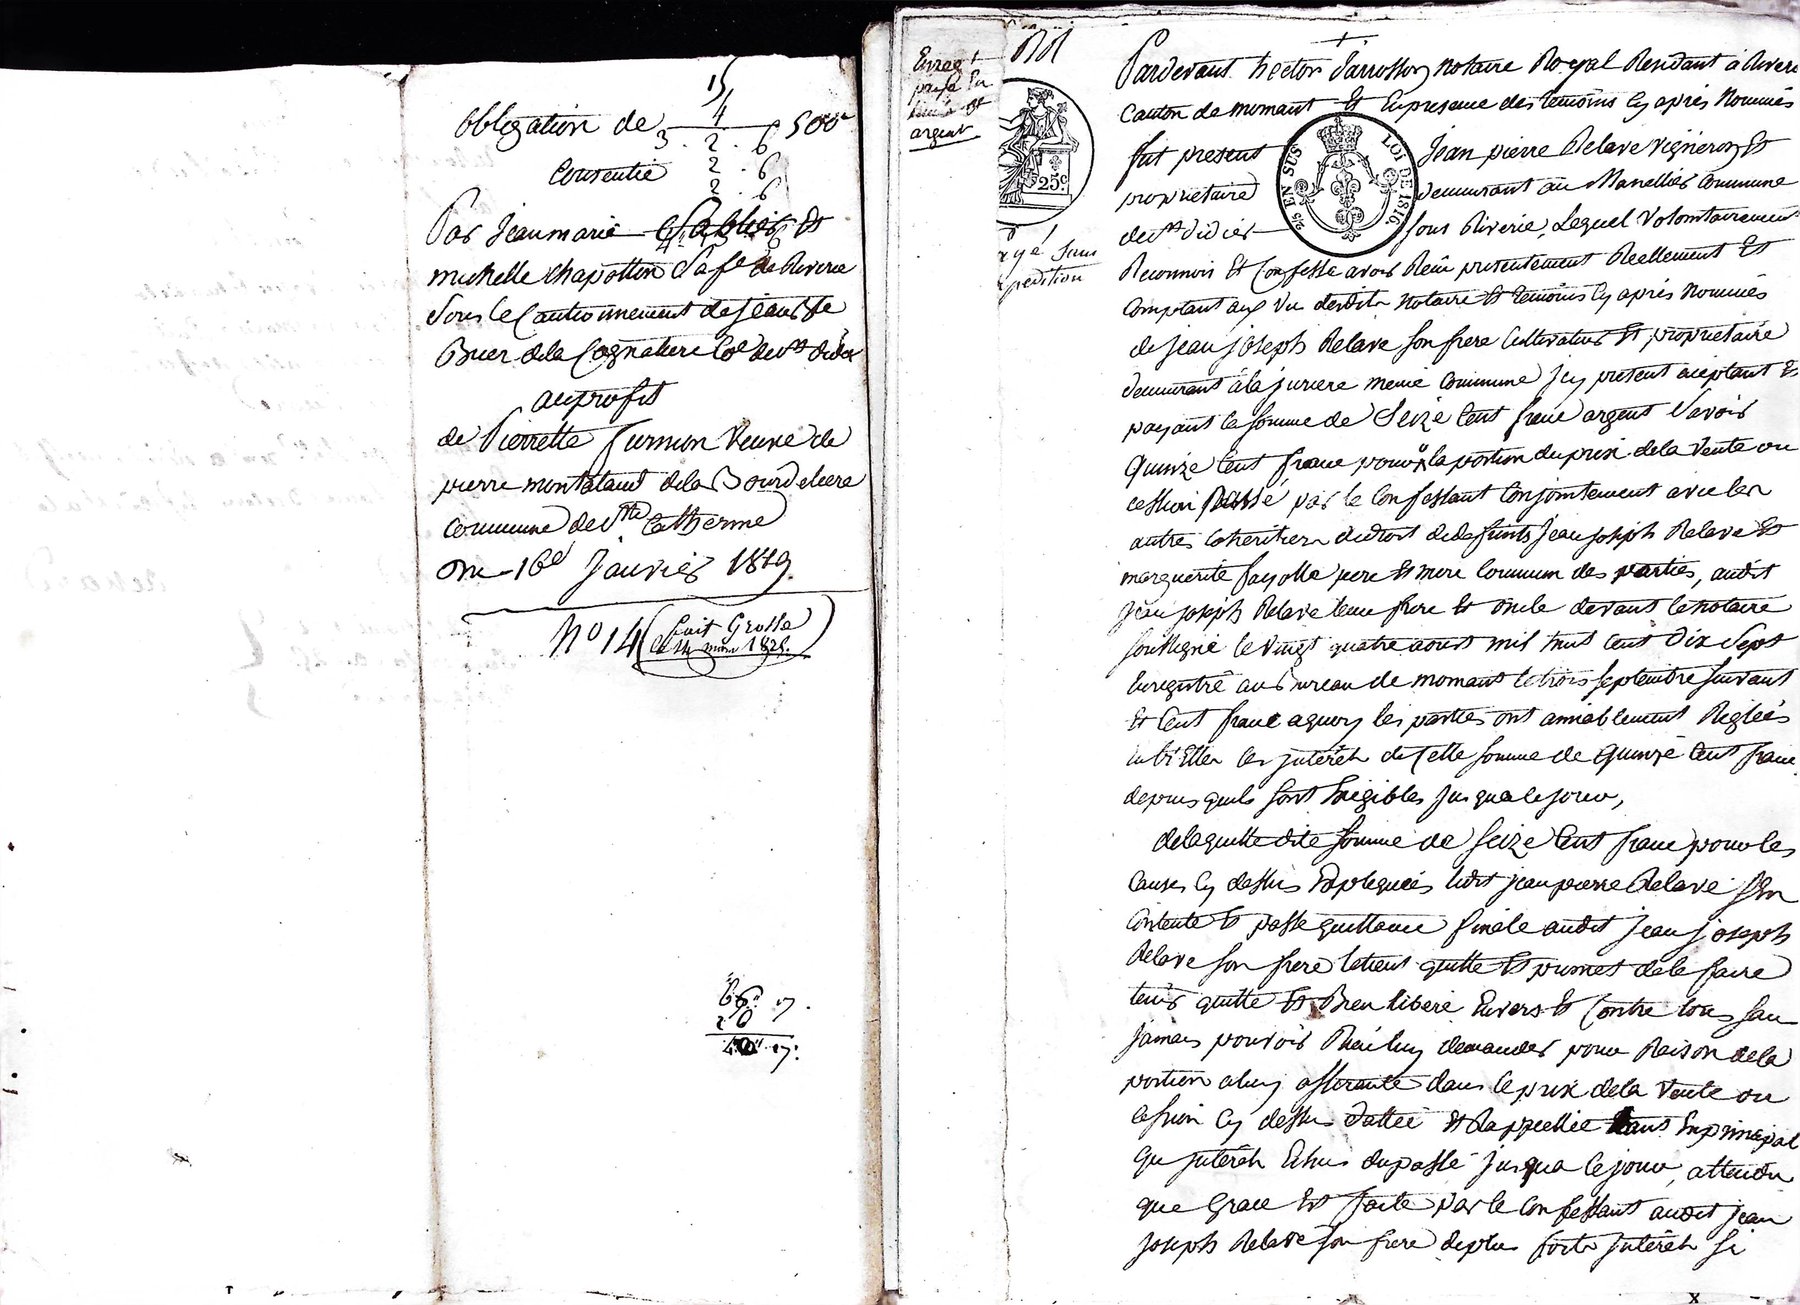 15
4
obligation de 500
3 . 2 . 6
Consentie 2 . 6
2 . 6
Par Jeanmarie et
michelle chapottin Sa fe de Riverie
Sous le Cautionnement de jean
de la Cognatiere Coe de St didier
au profit
de Pierrette furnion Veuve de
pierre montaland de la Bourdeliere
Commune de Ste Catherine
Du 16 Janvier 1819
No 14 fait Grosse
Le 14 1825.
66 " 17 .
20
40 " 17 .
Enregt
payé en
argent
25c
sans
expedition
25 EN SUS
LOI DE 1816
Pardevant hector Jarrosson notaire Royal Residant a Riverie
Canton de mornant Et En presence des temoins Cy après Nommés
fut present Jean pierre Relave Vigneron Et
proprietaire demeurant au Manellier Commune
de St didier sous Riverie, Lequel Volontairement
Reconnoit Et Confesse avoir Reçu presentement Reellement Et
Comptant aux Vu desdits Notaire Et temoins Cy après Nommés
de jean joseph Relave son frere Cultivateur Et proprietaire
demeurant à la juriere meme Commune Icy present aceptant Et
payant la somme de Seize Cent franc argent Savoir
Quinze Cent franc pour la portion du prix de la Vente ou
cession passé par le Confessant Conjointement avec les
autres Coheritiers de droit de defunts Jean joseph Relave Et
marguerite fayolle pere Et mere Commun des parties, audit
Jean joseph Relave leur frere Et oncle devant le notaire
soussigné le Vingt quatre aoust mil huit Cent Dix Sept
Enregistré au Bureau de mornant le trois septembre suivant
Et Cent franc a quoy les parties ont amiablement Reglées
entr'Elles les interêts de Cette somme de Quinze Cent franc
depuis quils sont Exigibles jusqua ce jour,
de laquelle dite somme de seize Cent franc pour les
Causes Cy dessus Expliquées ledit jean pierre Relave s'En
Contente Et passe quittance finale audit jean joseph
Relave son frere le tient quitte Et promet de le faire
tenir quitte Et Bien libéré Envers Et Contre tous sans
jamais pouvoir Rien luy demander pour Raison de la
portion a luy afferante dans le prix de la Vente ou
Cession Cy dessus dattée Et Rappellée tant En principal
qu'interêts Echus du passé jusqua Ce jour, attendu
que Grace Est faite par le Confessant audit jean
joseph Relave son frere de plus forts interêts si